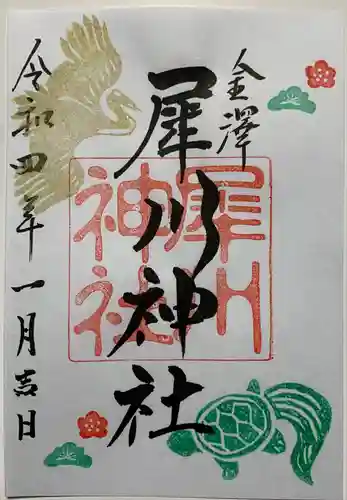 金澤
犀川神社
令和四年一月吉日
犀川
神社